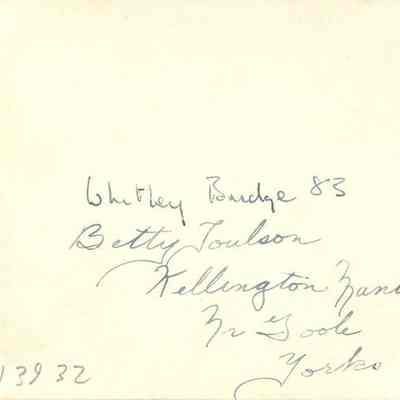 Whitley Bridge 83
Betty Toulson
Kellington Mano
Nr Goole
Yorks
13932